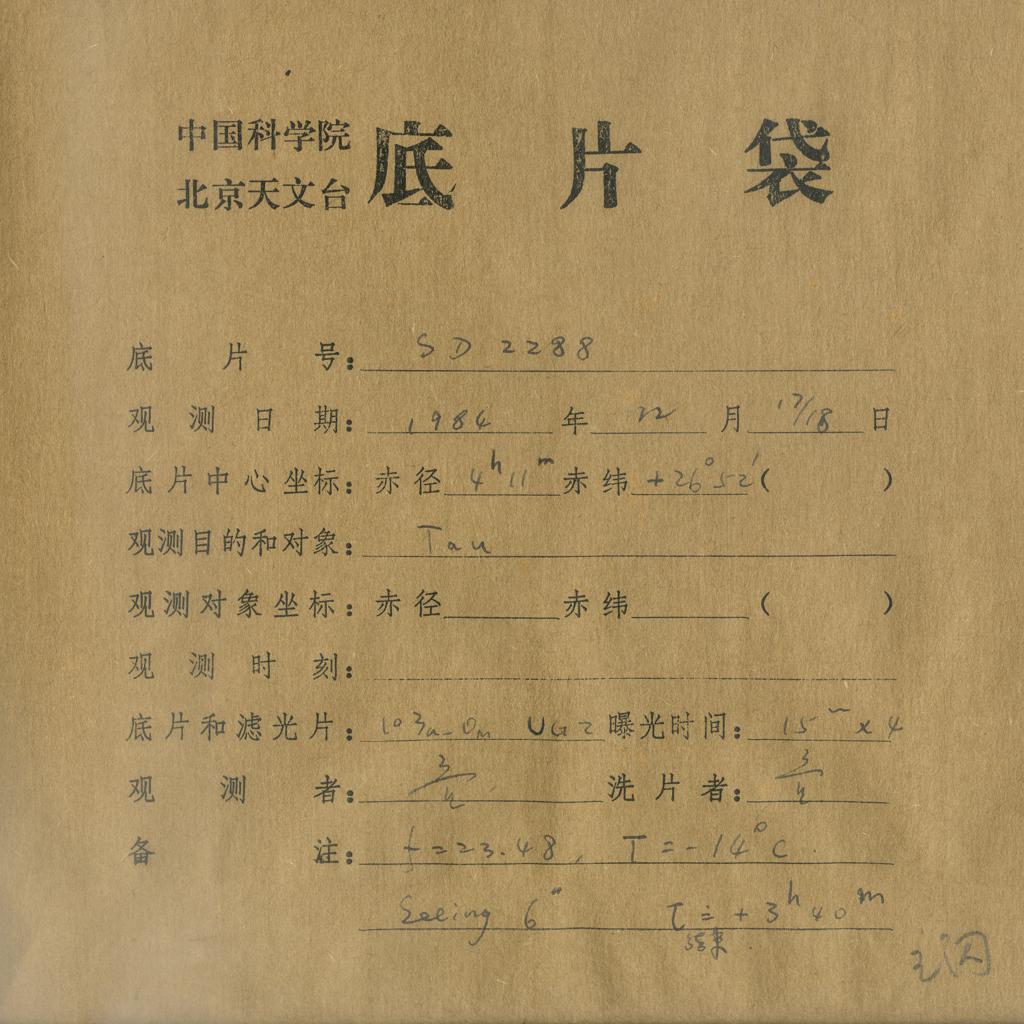 中国科学院
北京天文台
底片袋
底片号: SD 2288
观测日期: 1984 年 12 月 17/18 日
底片中心坐标: 赤径 4h 11m 赤纬 +26°52′ ( )
观测目的和对象: Tau
观测对象坐标: 赤径 赤纬 ( )
观测时刻:
底片和滤光片: 103a-O UG2 曝光时间: 15m x 4
观测者: 洗片者:
备注: f=23.48, T=-14°C.
Seeing 6″ +3h40m
结束